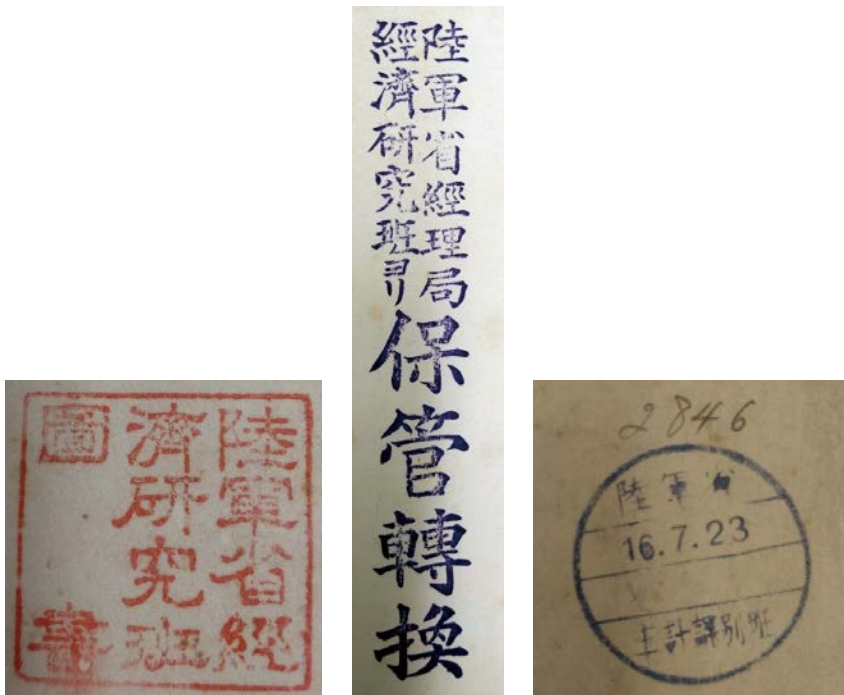 陸軍省經
濟研究班
圖書
陸軍省經理局
經濟研究班ヨリ
保管轉換
2846
陸軍省
16.7.23
主計課別班